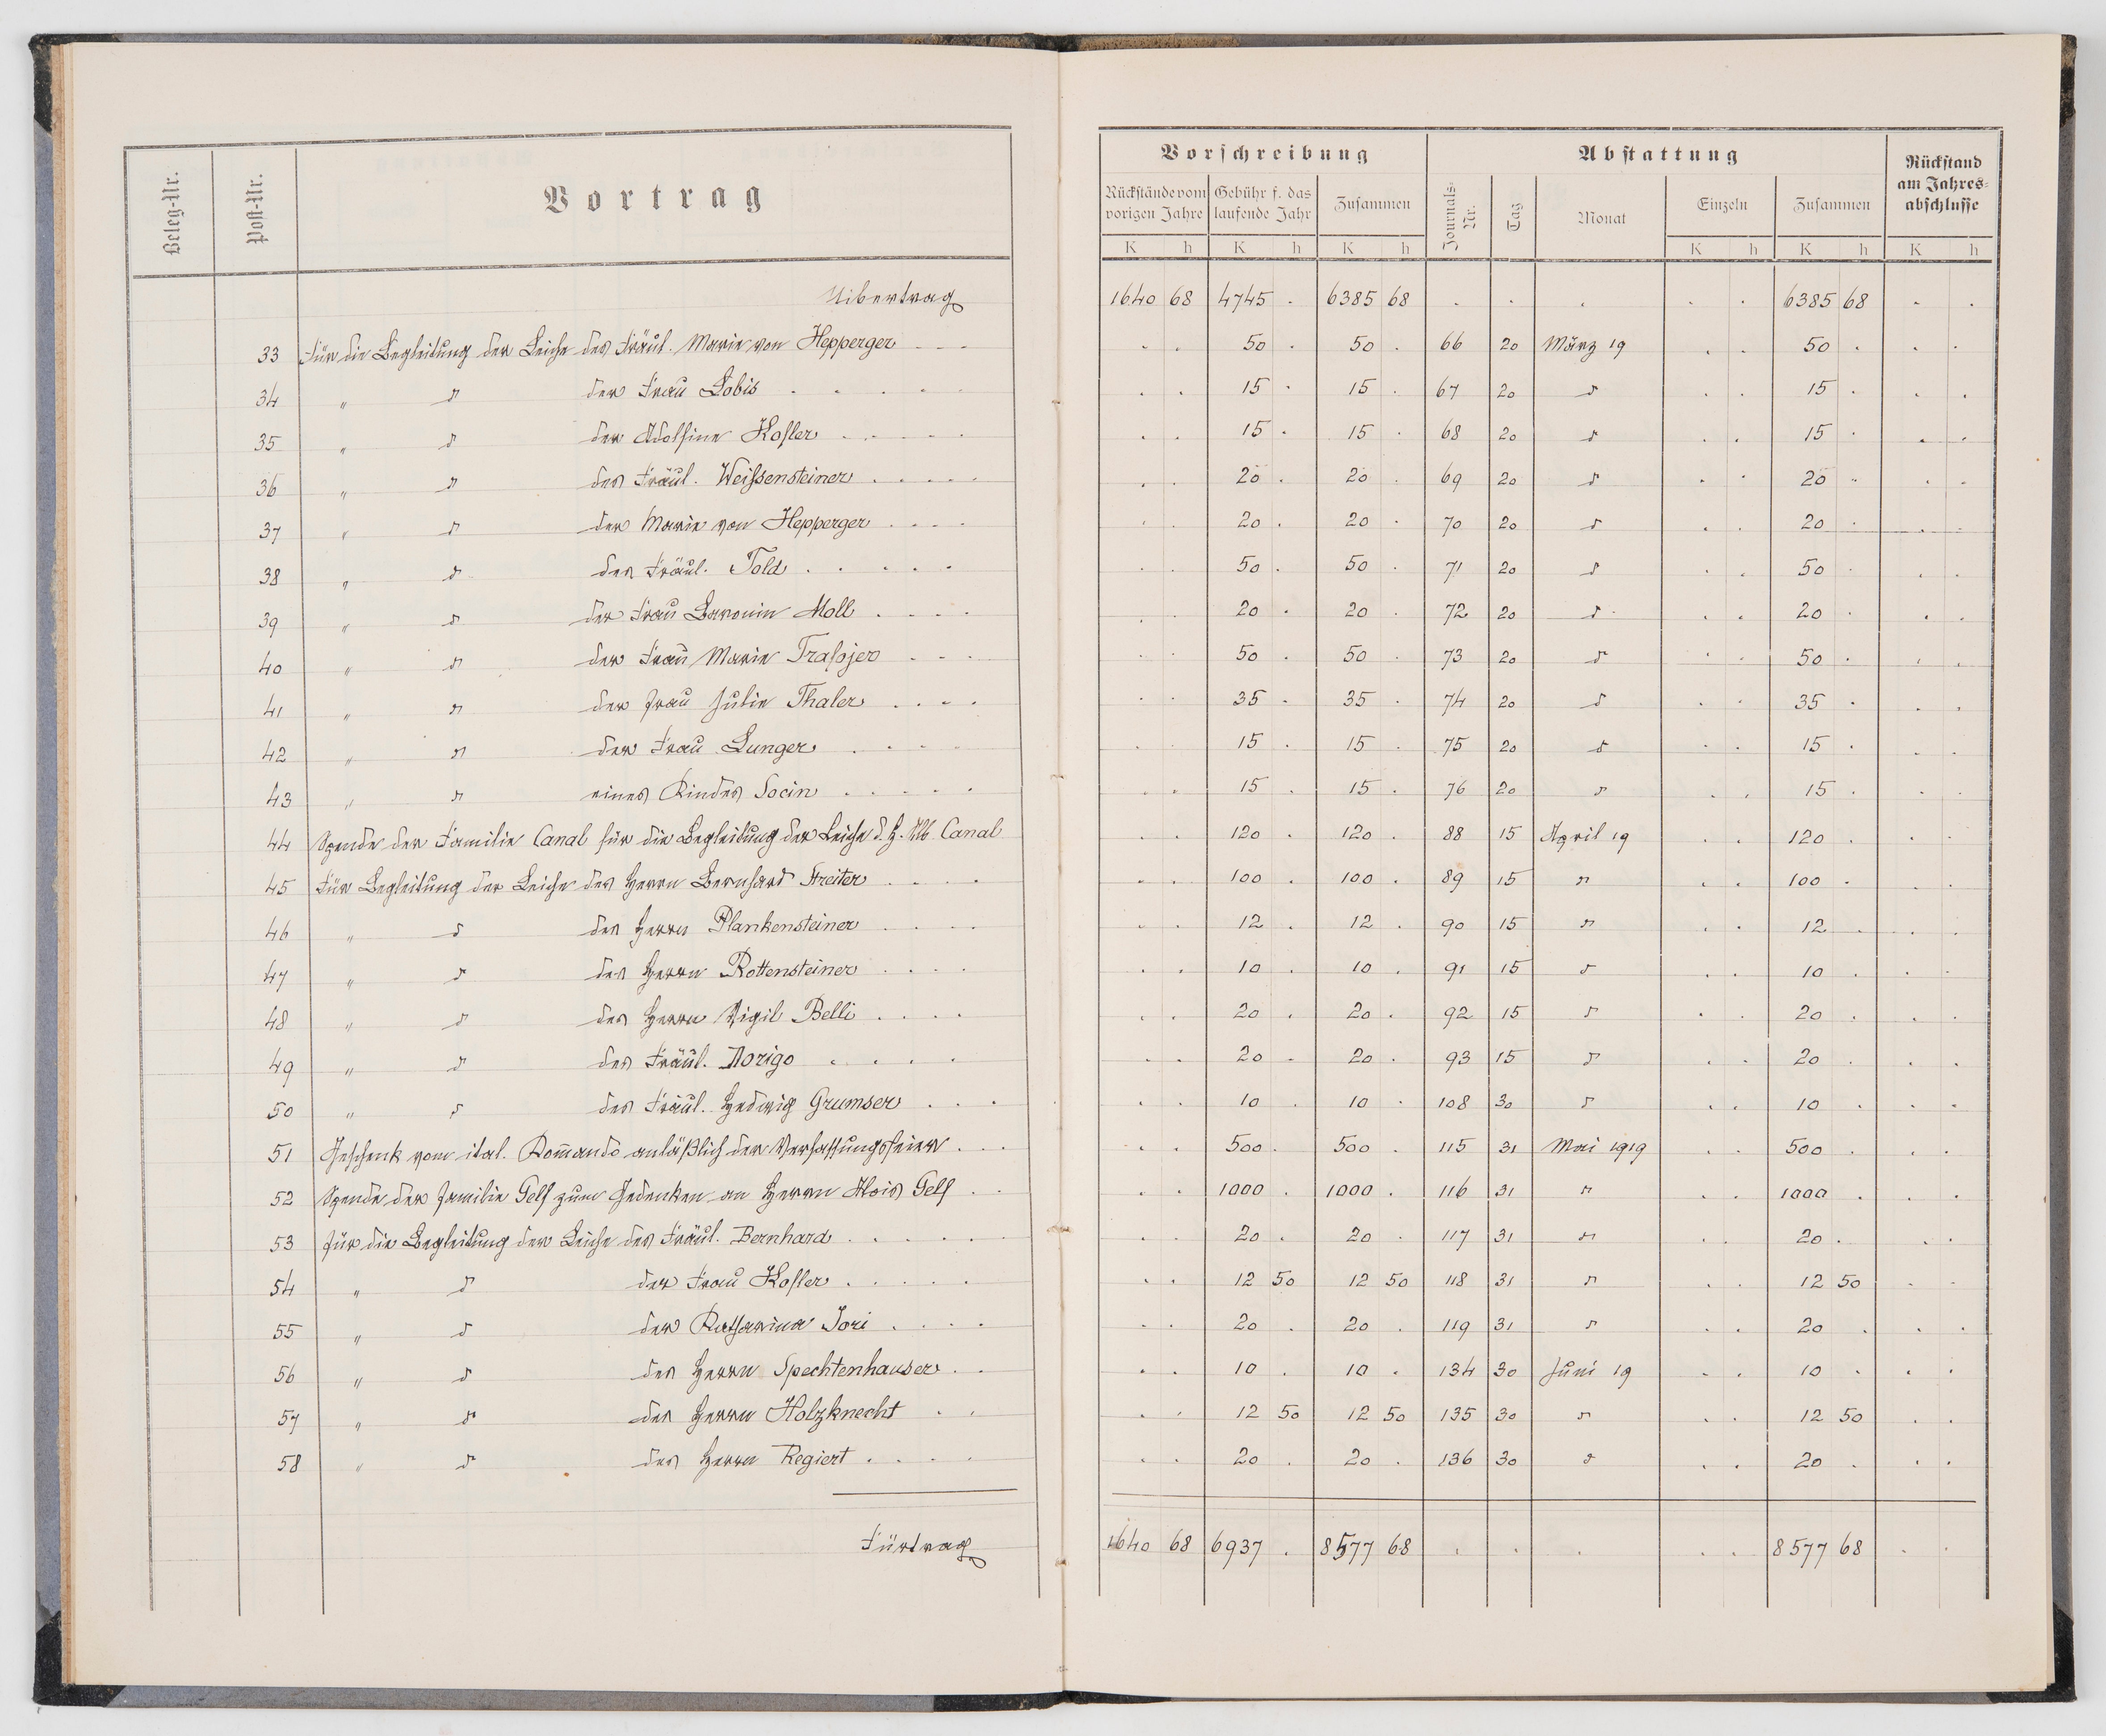 Beleg-Nr. Post-Nr. Vortrag
Vorschreibung Abstattung Rückstand am Jahres-abschlusse
Rückstände vom vorigen Jahre Gebühr f. das laufende Jahr Zusammen Journals-Nr. Tag Monat Einzeln Zusammen
K h K h K h K h K h K h
Uibertrag 1640 68 4745 . 6385 68 . . . . . 6385 68 . .
33 Für die Begleitung der Leiche des Fräul. Marie von Hepperger . . . . . 50 . 50 . 66 20 März 19 . . 50 . . .
34 " d der Frau Lobis . . . . . . . 15 . 15 . 67 20 d . . 15 . . .
35 " d der Adolfine Kofler . . . . . . . 15 . 15 . 68 20 d . . 15 . . .
36 " d des Fräul. Weissensteiner . . . . . . . 20 . 20 . 69 20 d . . 20 . . .
37 " d der Marie von Hepperger . . . . . . 20 . 20 . 70 20 d . . 20 . . .
38 " d des Fräul. Told . . . . . . . 50 . 50 . 71 20 d . . 50 . . .
39 " d der Frau Baronin Moll . . . . . . 20 . 20 . 72 20 d . . 20 . . .
40 " d der Frau Marie Trafojer . . . . . 50 . 50 . 73 20 d . . 50 . . .
41 " d der Frau Julie Thaler . . . . . . 35 . 35 . 74 20 d . . 35 . . .
42 " d der Frau Lunger . . . . . . 15 . 15 . 75 20 d . . 15 . . .
43 " d eines Kindes Socin . . . . . . . 15 . 15 . 76 20 d . . 15 . . .
44 Spende der Familie Canal für die Begleitung der Leiche d. H. Alb. Canal . . 120 . 120 . 88 15 April 19 . . 120 . . .
45 Für Begleitung der Leiche des Herrn Bernhard Streiter . . . . . . 100 . 100 . 89 15 d . . 100 . . .
46 " d des Herrn Plankensteiner . . . . . . 12 . 12 . 90 15 d . . 12 . . .
47 " d des Herrn Rottensteiner . . . . . . 10 . 10 . 91 15 d . . 10 . . .
48 " d des Herrn Vigil Belli . . . . . . 20 . 20 . 92 15 d . . 20 . . .
49 " d des Fräul. Norigo . . . . . . 20 . 20 . 93 15 d . . 20 . . .
50 " d des Fräul. Hedwig Grumser . . . . . 10 . 10 . 108 30 d . . 10 . . .
51 Geschenk vom ital. Kom̄ando anläßlich der Verfassungsfeier . . . . . 500 . 500 . 115 31 Mai 1919 . . 500 . . .
52 Spende der Familie Gelf zum Gedenken an Herrn Alois Gelf . . . . 1000 . 1000 . 116 31 d . . 1000 . . .
53 Für die Begleitung der Leiche des Fräul. Bernhard . . . . . . . . 20 . 20 . 117 31 d . . 20 . . .
54 " d der Frau Kofler . . . . . . . 12 50 12 50 118 31 d . . 12 50 . .
55 " d der Katharina Jori . . . . . . 20 . 20 . 119 31 d . . 20 . . .
56 " d des Herrn Spechtenhauser . . . . 10 . 10 . 134 30 Juni 19 . . 10 . . .
57 " d des Herrn Holzknecht . . . . 12 50 12 50 135 30 d . . 12 50 . .
58 " d des Herrn Regiert . . . . . . 20 . 20 . 136 30 d . . 20 . . .
Fürtrag 1640 68 6937 . 8577 68 . . . . . 8577 68 . .